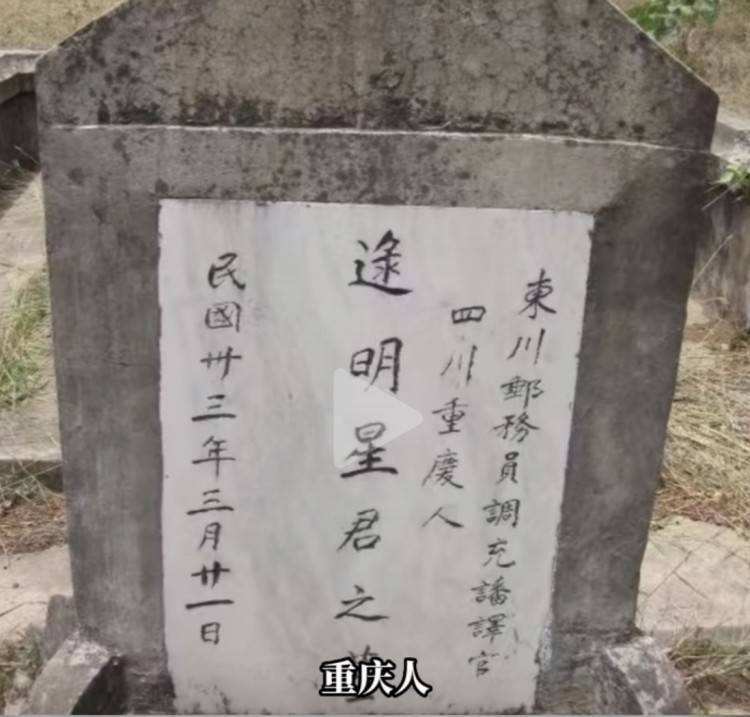 東川郵務員調充譒譯官
四川重慶人
逯明星君之墓
民國卅三年三月廿一日
重庆人